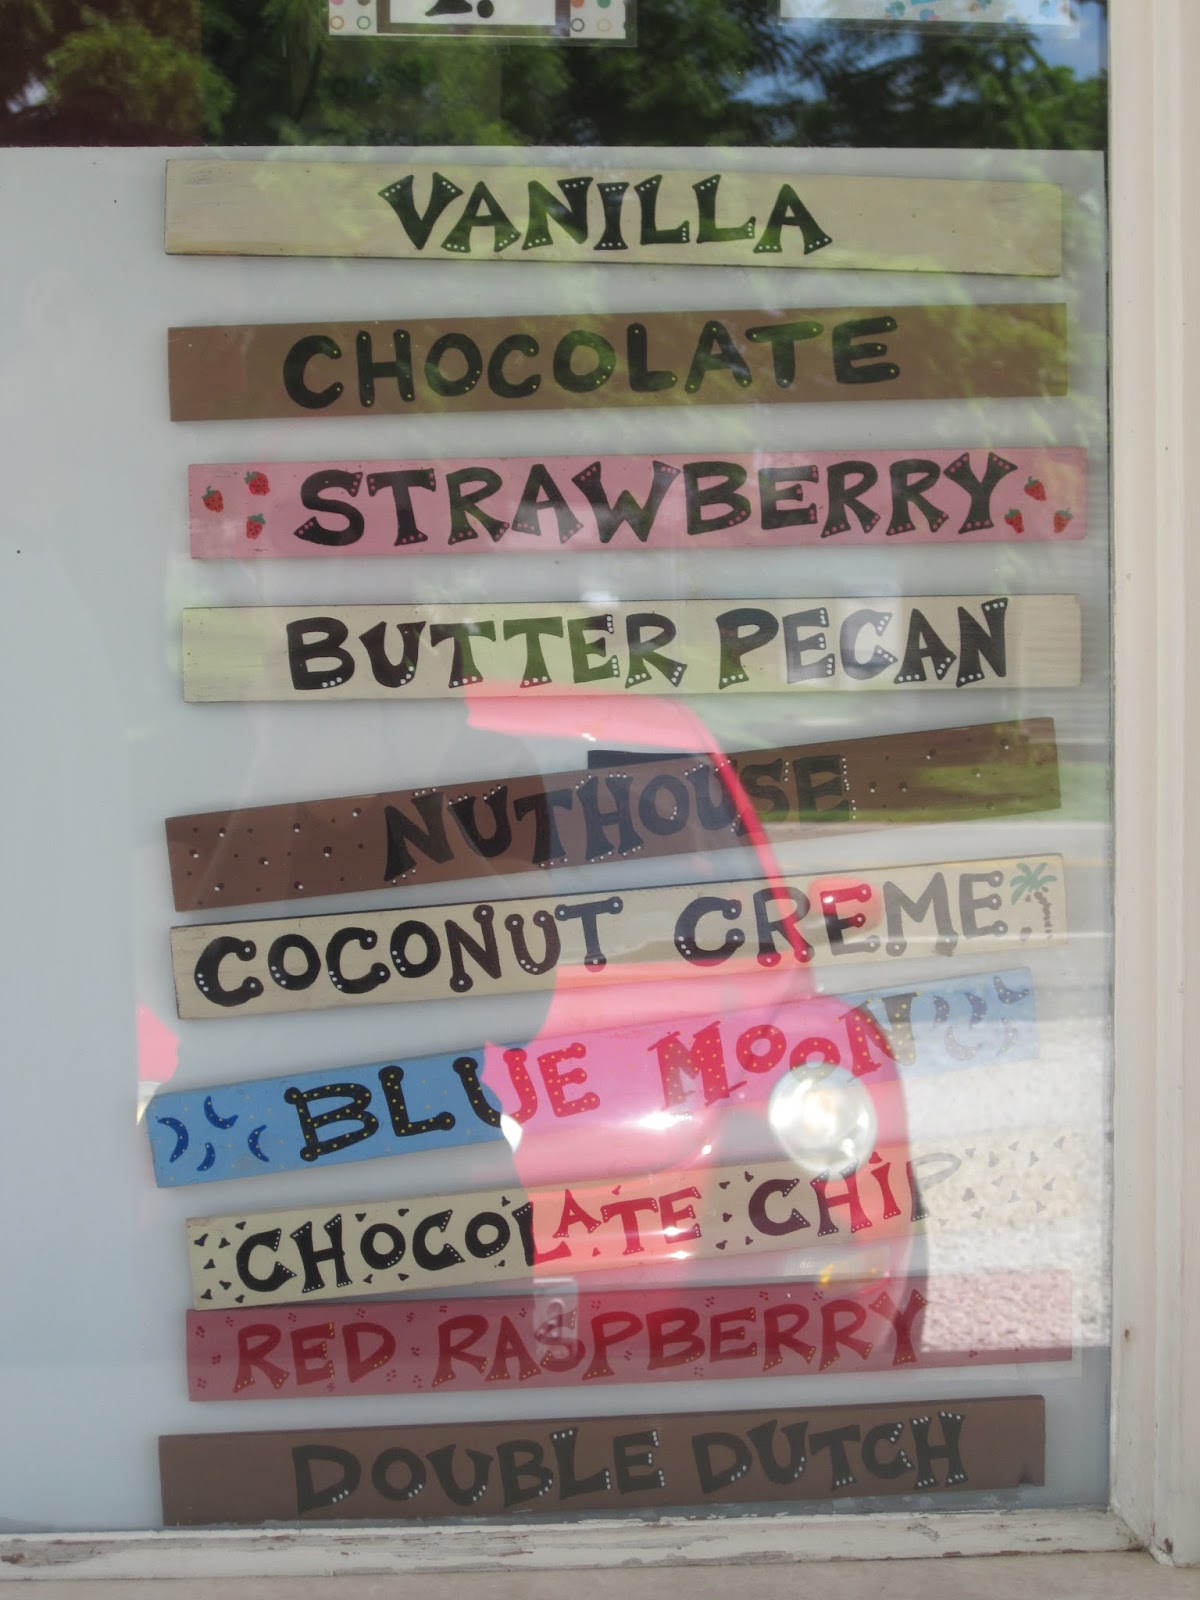 VANILLA
CHOCOLATE
STRAWBERRY
BUTTER PECAN
NUTHOUSE
COCONUT CREME
BLUE MOON
CHOCOLATE CHIP
RED RASPBERRY
DOUBLE DUTCH